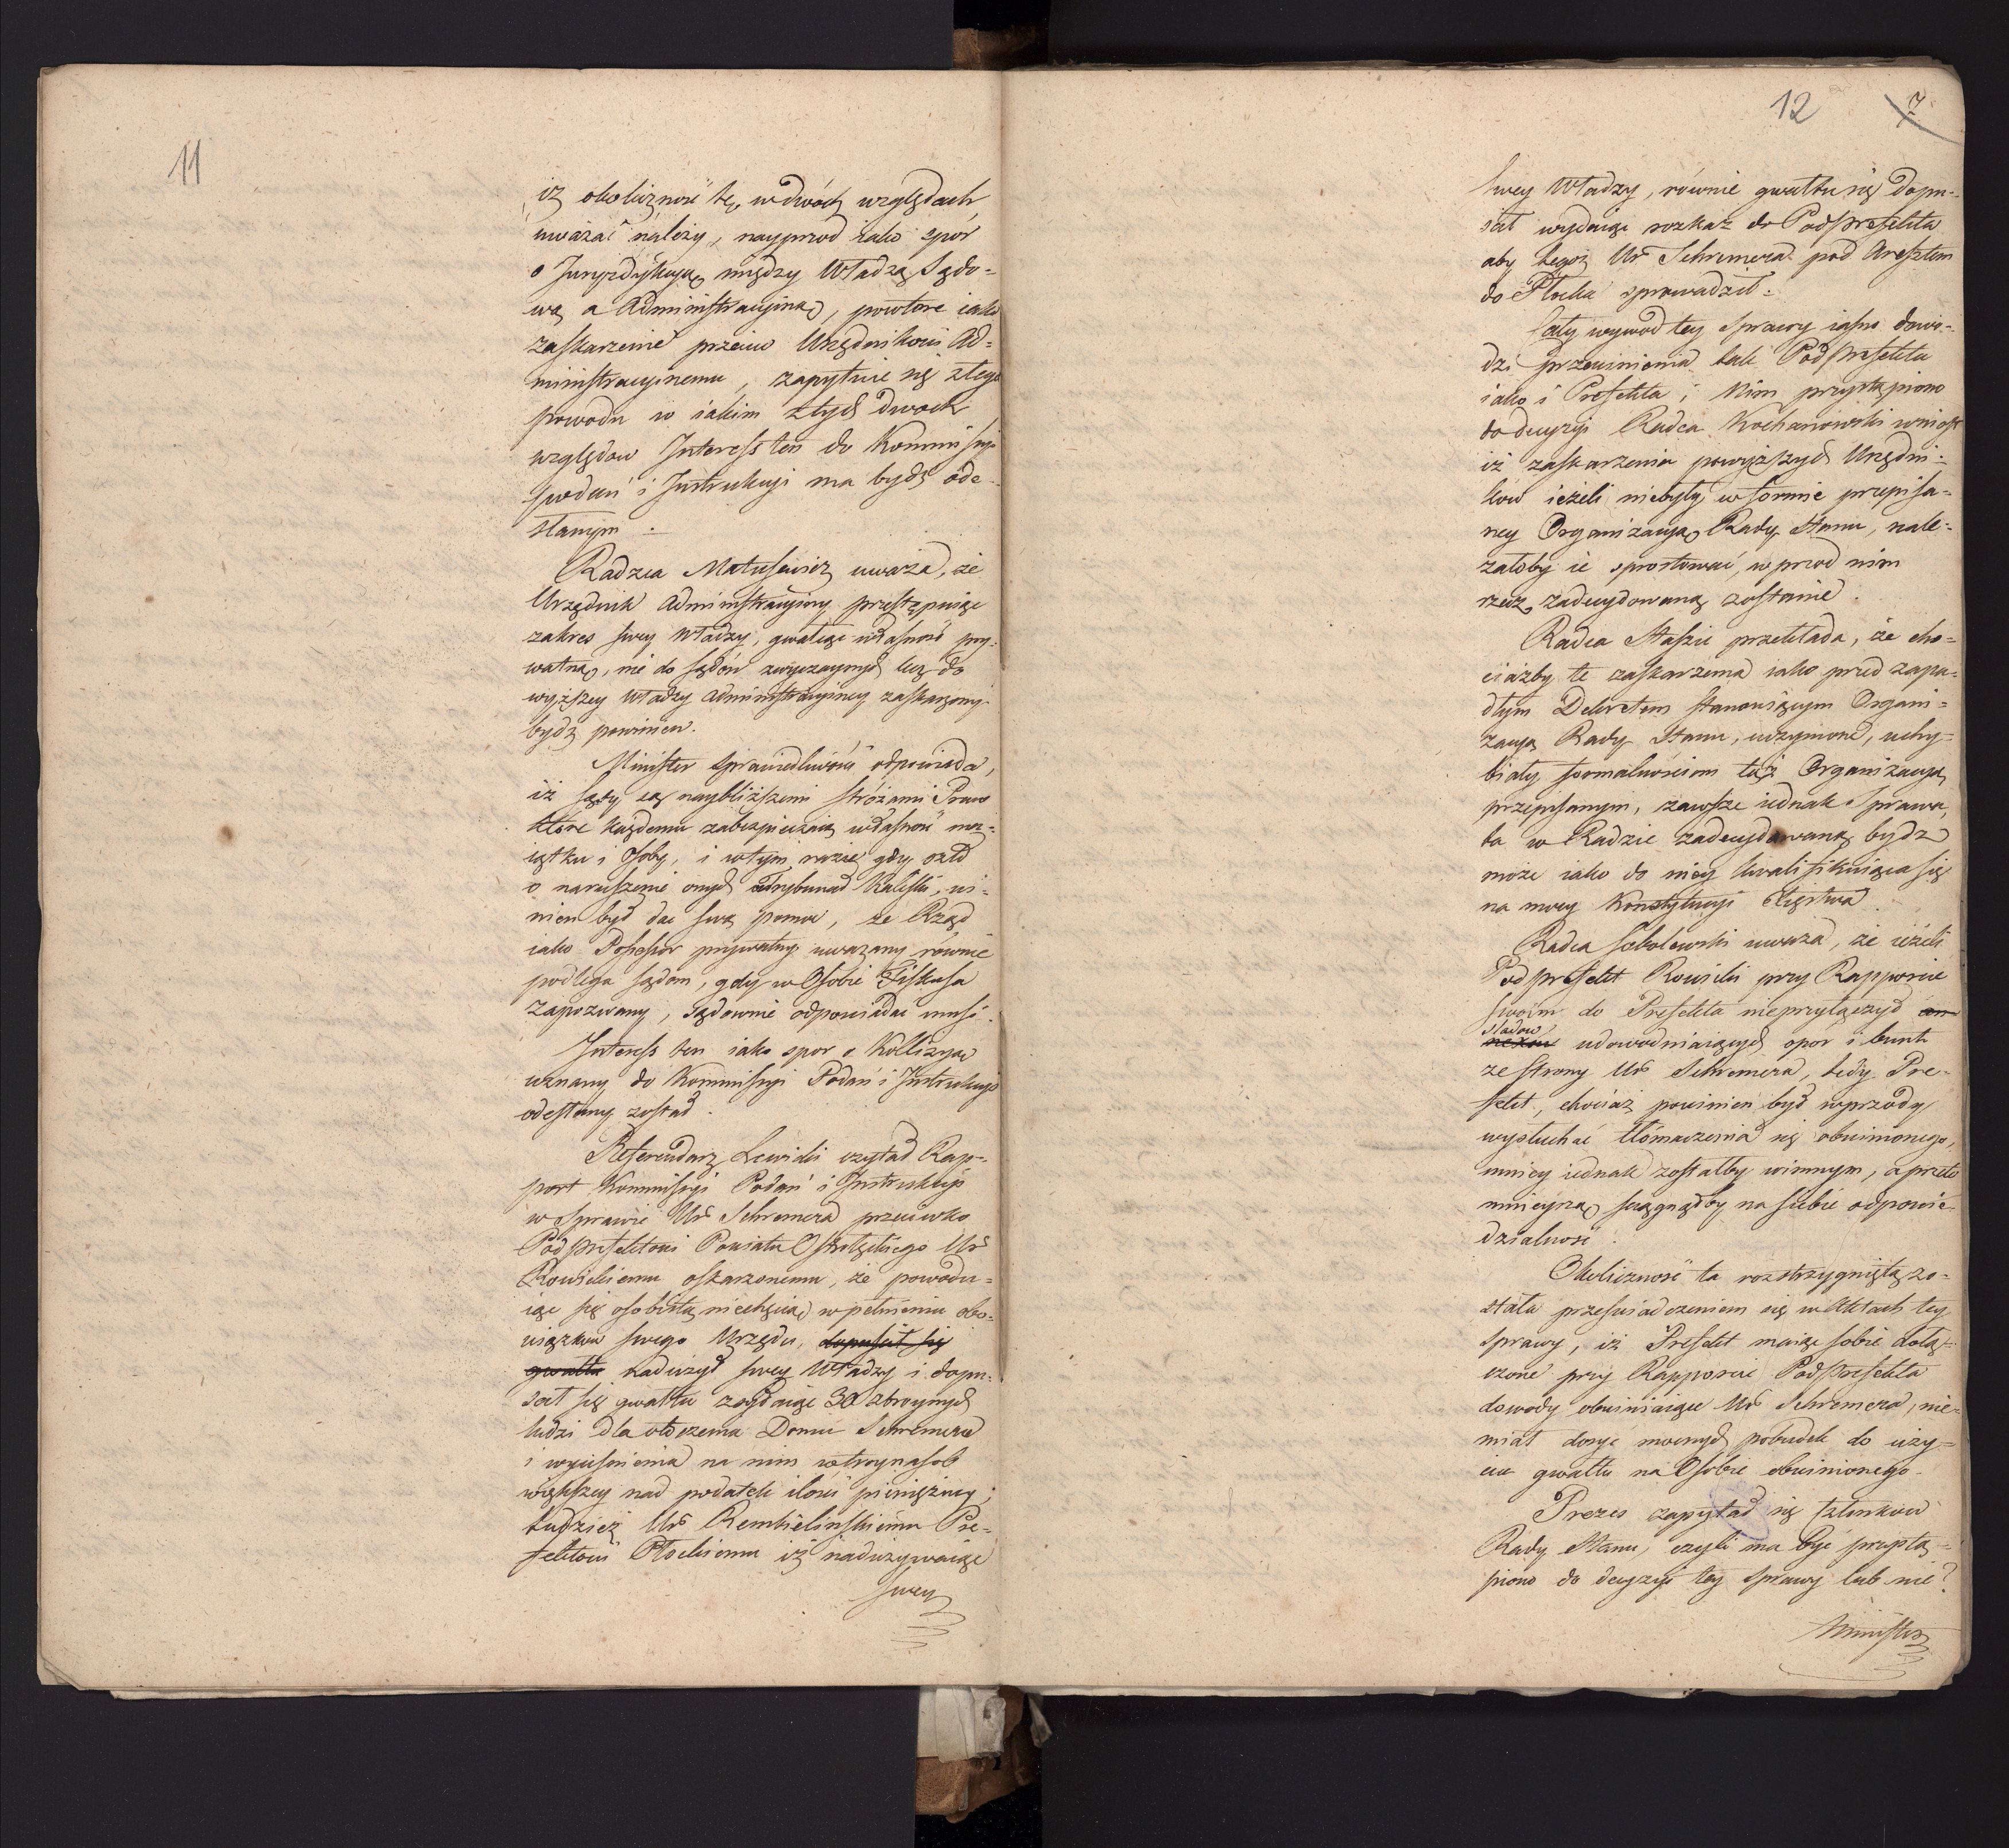 11
iż okoliczność tę w dwóch względach
uważać należy, nayprzod iako spór
o Juryzdykcyą między Władzą Sądo-
wą a Administracyiną, powtore iako
zaskarzenie przeciw Urzędnikowi Ad-
ministracyinemu, zapytuie się z tego
powodu w iakim z tych dwoch
względow Interess ten do Kommissyi
podań i Instrukcyi ma bydź ode-
słanym.
Radzca Matusewicz uważa, że
Urzędnik administracyiny przestępuiąc
zakres swey władzy, gwałcąc własność pry-
watną, nie do sądów zwyczaynych lecz do
wyższey władzy administracyiney zaskarżony
bydź powinien.
Minister sprawiedliwości odpowiada,
iż sądy są naybliższemi stróżami Praw
które każdemu zabezpieczaią własność ma-
iątku i osoby, i w tym razie gdy szło
o naruszenie onych Trybunał Kaliski, wi-
nien był dać swą pomoc, że Rząd
iako Possessor prywatny uwazany równie
podlega sądom, gdy w Osobie Fiskusa
zapozwany, sądownie odpowiadać musi.
Interess ten iako spor o Kollizyą
uznany do Kommissyi Podań i Instrukcyi
odesłany został.
Referendarz Lewicki czytał Rap-
port Kommissyi Podań i Instrukcyi
w sprawie Ur Schremera przeciwko
PodPrefektowi Powiatu Ostrołęckiego Ur
Rowickiemu oskarzonemu, że powodu-
iąc się osobistą niechęcią w pełnieniu obo-
wiązków swego Urzędu, dopuścił się
gwałtu nadużył swey Władzy i dopu-
scił się gwałtu zsyłaiąc 30 zbroynych
ludzi dla otoczenia Domu Schremera
i wyciśnienia na nim w troynasob
większey nad podatek ilości pieniężney;
tudzież Ur Rembielińskiemu Pre-
fektowi Płockiemu iż nadużywaiąc
swey
12 7
swey Władzy, równie gwałtu się dopu-
scił wydaiąc rozkaz do PodPrefekta
aby tegoż Ur Schremera pod Aresztem
do Płocka sprowadził.
Cały wywod tey sprawy iasno dowo-
dzi przewinienia tak PodPrefekta
iako i Prefekta; nim przystąpiono
do decyzyi Radca Kochanowski wniósł
iż zaskarzenia powyższych Urzędni-
ków ieżeli niebyły w formie przepisa-
ney Organizacyą Rady Stanu, nale-
żałoby ie sprostować, w przod nim
rzecz zadecydowaną zostanie.
Radca Staszic przekłada, że cho-
ciażby te zaskarzenia iako przed zapa-
dłym Dekretem stanowiącym Organi-
zacyą Rady Stanu, uczynione, uchy-
biały formalnościom tąż Organizacyą
przepisanym, zawsze iednak Sprawa
ta w Radzie zadecydowaną bydz
może iako do niey kwalifikuiąca się
na mocy Konstytucyi Xięstwa.
Radca Sobolewski uważa, że ieżeli
PodPrefekt Rowicki przy Rapporcie
swoim do Prefekta nieprzyłączył an
śladow
nexów udowodniaiących opór i bunt
ze strony Ur Schremera, tedy Pre-
fekt, chociaż powinien był wprzody
wysłuchać tłómaczenia się obwinionego,
mniey iednak zostałby winnym, a przeto
mnieyszą sciągnąłby na siebie odpowie-
dzialność.
Okoliczność ta rozstrzygniętą zo-
stała przeświadczeniem się w Aktach tey
sprawy, iż Prefekt maiąc sobie dołą-
czone przy Rapporcie PodPrefekta
dowody obwiniaiące Ur Schremera, nie
miał dosyć mocnych pobudek do uży-
cia gwałtu na Osobie obwinionego.
Prezes zapytał się Członków
Rady Stanu, czyli ma być przystą-
piono do decyzyi tey sprawy lub nie?
Minister